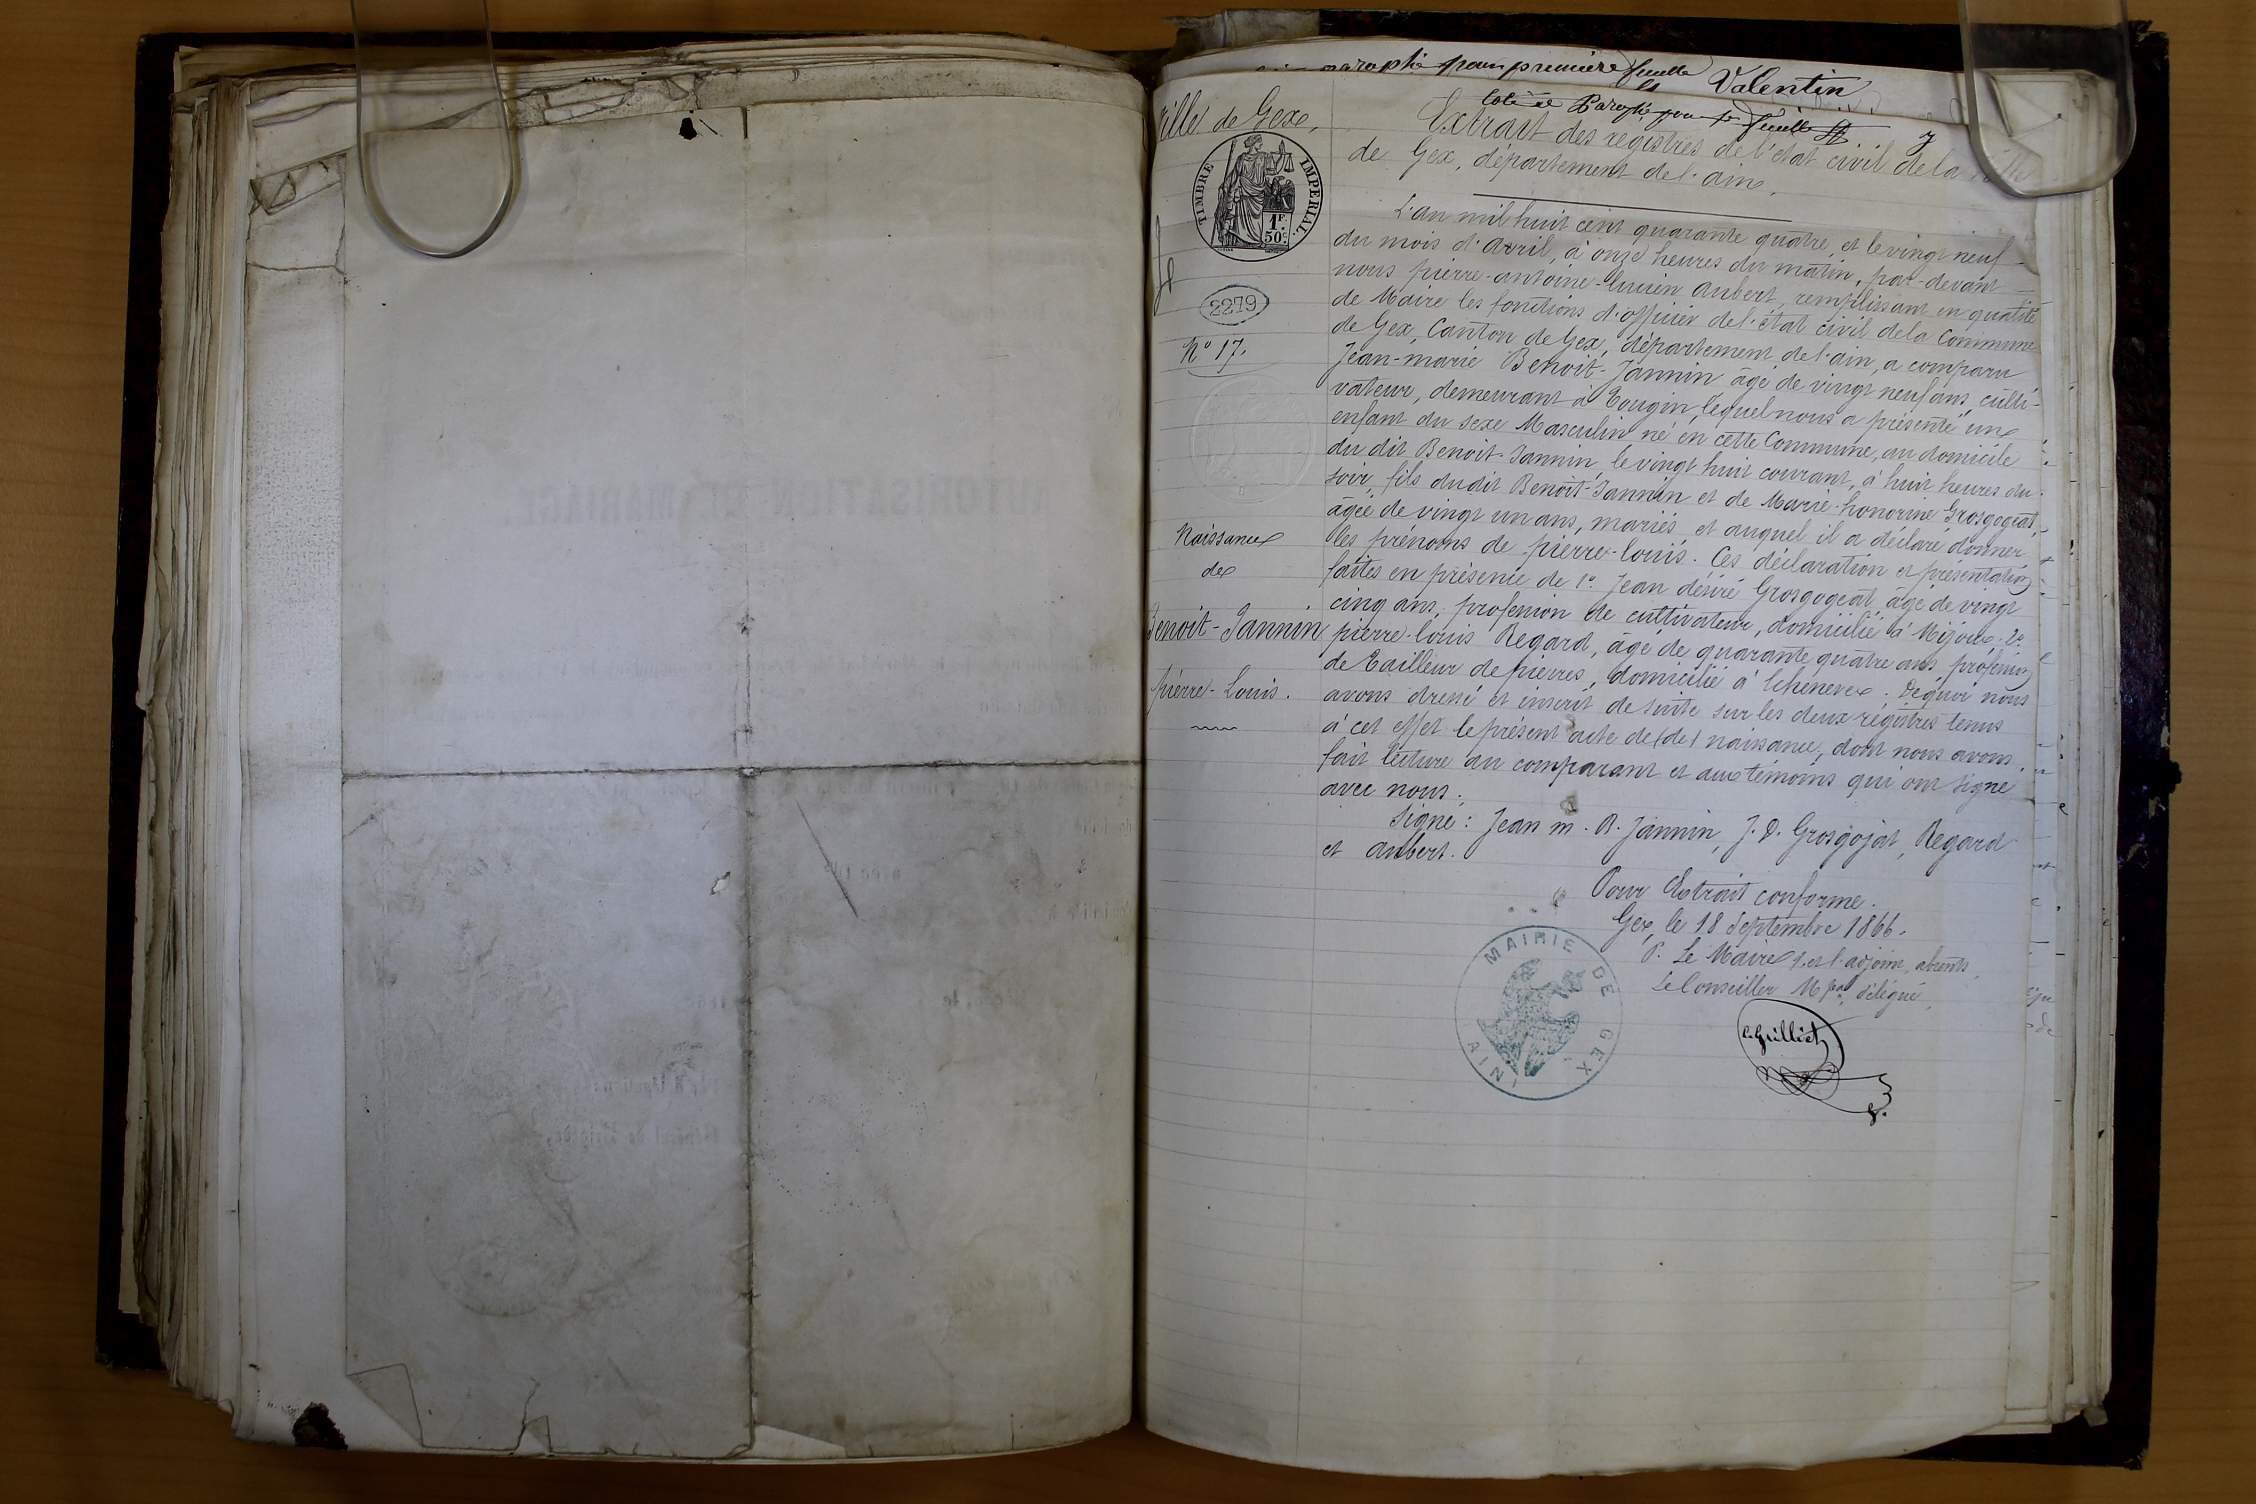 paraphé pour première feuille
Valentin
Coté et Paraphé pour 1e feuille
Ville de Gex,
Extrait des registres de l'état civil de la Ville
de Gex, département de l'ain.
TIMBRE IMPERIAL
1F.
50c.
2279
N° 17.
Naissance
de
Benoit-Jannin
pierre-Louis.
L'an mil huit cent quarante quatre, et le vingt neuf
du mois d'avril, à onze heures du matin, par-devant
nous pierre-antoine-lucien aubert, remplissant en qualité
de Maire les fonctions d'officier de l'état civil de la Commune
de Gex, Canton de Gex, département de l'ain, a comparu
Jean-marie Benoit-Jannin âgé de vingt neuf ans, culti-
vateur, demeurant à Tougin, lequel nous a présenté un
enfant du sexe Masculin né en cette Commune, au domicile
du dit Benoit-Jannin, le vingt huit courant, à huit heures du
soir, fils dudit Benoit-Jannin et de Marie-honorine Grosgogeat,
âgée de vingt un ans, mariés, et auquel il a déclaré donner
les prénoms de pierre-louis. Ces déclaration et présentation
faites en présence de 1° Jean désiré Grosgogeat, âgé de vingt
cinq ans, profession de cultivateur, domicilié à Mijoux. 2°
pierre-louis Regard, âgé de quarante quatre ans, profession
de Tailleur de pierres, domicilié à lchenevex. De quoi nous
avons dressé et inscrit de suite sur les deux régistres tenus
à cet effet le présent acte de (de) naissance, dont nous avons
fait lecture au comparant et aux témoins qui ont signé
avec nous.
Signé: Jean m. B. Jannin, J. D. Grosgojat, Regard
et aubert.
Pour Extrait conforme.
Gex, le 18 Septembre 1866.
P. Le Maire et l'adjoint absents,
Le Conseiller Mpal délégué,
MAIRIE DE GEX
AIN